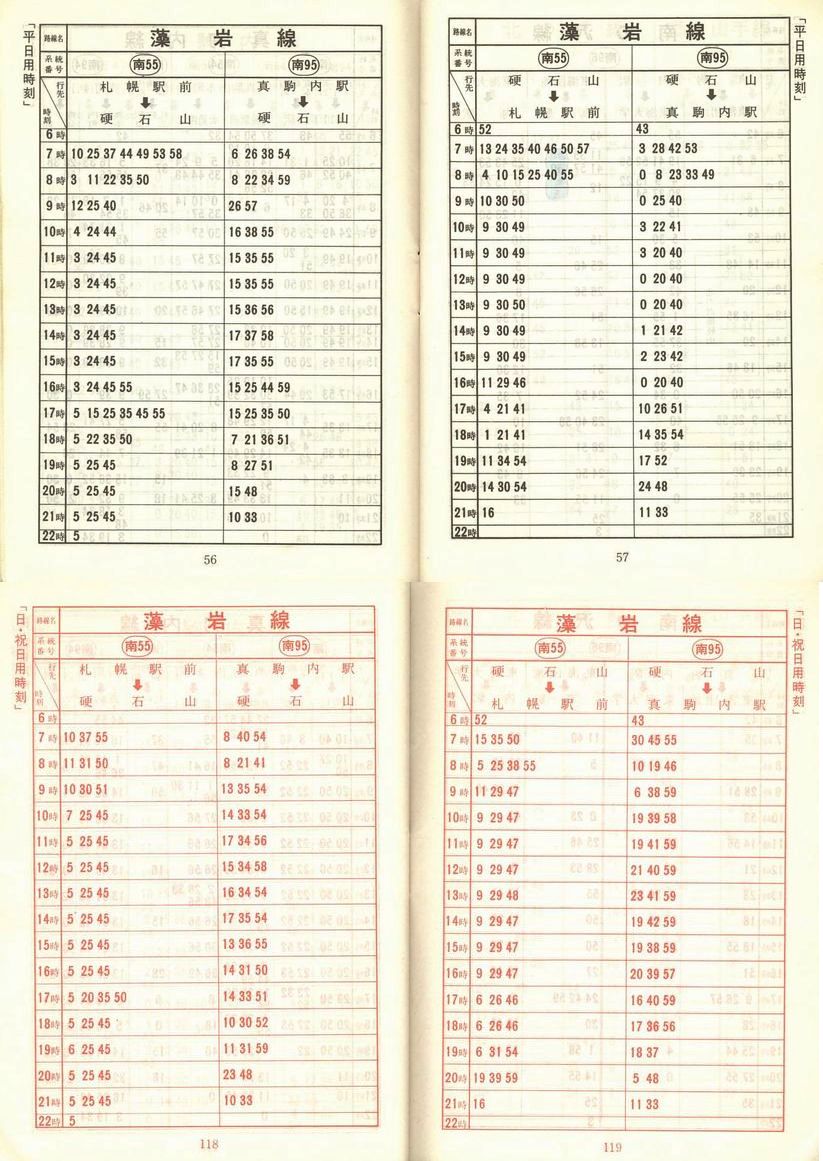 「平日用時刻」
路線名 藻岩線
系統番号 南55 南95
行先 札幌駅前 真駒内駅
時刻 硬石山 硬石山
6時
7時 10 25 37 44 49 53 58 6 26 38 54
8時 3 11 22 35 50 8 22 34 59
9時 12 25 40 26 57
10時 4 24 44 16 38 55
11時 3 24 45 15 35 55
12時 3 24 45 15 35 55
13時 3 24 45 15 36 56
14時 3 24 45 17 37 58
15時 3 24 45 17 35 55
16時 3 24 45 55 15 25 44 59
17時 5 15 25 35 45 55 15 25 35 50
18時 5 22 35 50 7 21 36 51
19時 5 25 45 8 27 51
20時 5 25 45 15 48
21時 5 25 45 10 33
22時 5
56
「平日用時刻」
路線名 藻岩線
系統番号 南55 南95
行先 硬石山 硬石山
時刻 札幌駅前 真駒内駅
6時 52 43
7時 13 24 35 40 46 50 57 3 28 42 53
8時 4 10 15 25 40 55 0 8 23 33 49
9時 10 30 50 0 25 40
10時 9 30 49 3 22 41
11時 9 30 49 3 20 40
12時 9 30 49 0 20 40
13時 9 30 50 0 20 40
14時 9 30 49 1 21 42
15時 9 30 49 2 23 42
16時 11 29 46 0 20 40
17時 4 21 41 10 26 51
18時 1 21 41 14 35 54
19時 11 34 54 17 52
20時 14 30 54 24 48
21時 16 11 33
22時
57
「日・祝日用時刻」
路線名 藻岩線
系統番号 南55 南95
行先 札幌駅前 真駒内駅
時刻 硬石山 硬石山
6時
7時 10 37 55 8 40 54
8時 11 31 50 8 21 41
9時 10 30 51 13 35 54
10時 7 25 45 14 33 54
11時 5 25 45 17 34 56
12時 5 25 45 15 34 58
13時 5 25 45 16 34 54
14時 5 25 45 17 35 54
15時 5 25 45 13 36 55
16時 5 25 45 14 31 50
17時 5 20 35 50 14 33 51
18時 5 25 45 10 30 52
19時 6 25 45 11 31 59
20時 5 25 45 23 48
21時 5 25 45 10 33
22時 5
118
「日・祝日用時刻」
路線名 藻岩線
系統番号 南55 南95
行先 硬石山 硬石山
時刻 札幌駅前 真駒内駅
6時 52 43
7時 15 35 50 30 45 55
8時 5 25 38 55 10 19 46
9時 11 29 47 6 38 59
10時 9 29 47 19 39 58
11時 9 29 47 19 41 59
12時 9 29 47 21 40 59
13時 9 29 48 23 41 59
14時 9 29 47 19 42 59
15時 9 29 47 19 38 59
16時 9 29 47 20 39 57
17時 6 26 46 16 40 59
18時 6 26 46 17 36 56
19時 6 31 54 18 37
20時 19 39 59 5 48
21時 16 11 33
22時
119